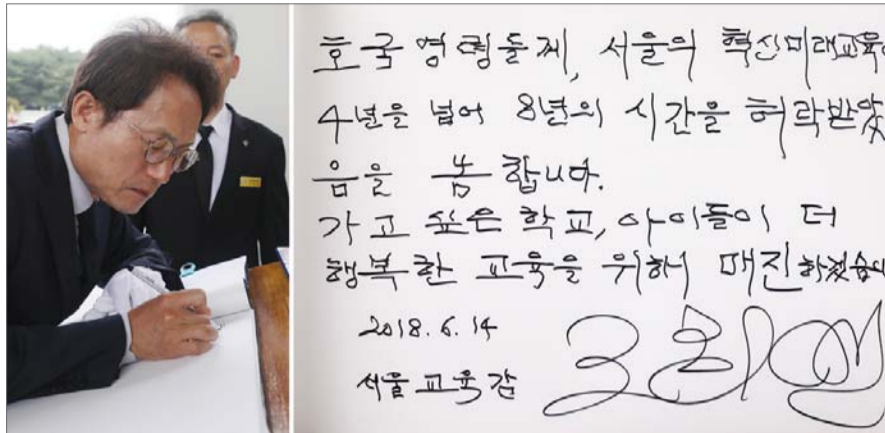 호국 영령들께, 서울의 혁신미래교육이
4년을 넘어 8년의 시간을 허락받았
음을 합니다.
가고 싶은 학교, 아이들이 더
행복한 교육을 위해서 매진하겠습니다
2018. 6. 14
서울 교육감 조희연